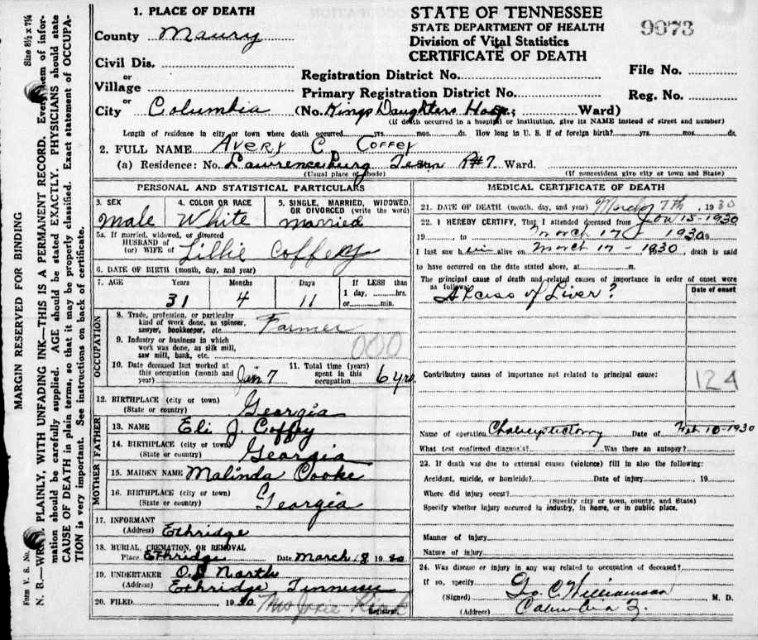 1. PLACE OF DEATH
County Maury
Civil Dis.
or
Village
or
City Columbia (No. Kings Daughters Hosp, Ward)
STATE OF TENNESSEE
STATE DEPARTMENT OF HEALTH
Division of Vital Statistics
CERTIFICATE OF DEATH
9073
Registration District No.
File No.
Primary Registration District No.
Reg. No.
(If death occurred in a hospital or institution, give its NAME instead of street and number)
Length of residence in city or town where death occurred yrs. mos. ds. How long in U. S. if of foreign birth? yrs. mos. ds.
2. FULL NAME Avery C Coffey
(a) Residence: No. Lawrenceburg Tenn R#7 Ward.
(Usual place of abode)
(If nonresident give city or town and State)
PERSONAL AND STATISTICAL PARTICULARS
3. SEX
male
4. COLOR OR RACE
White
5. SINGLE, MARRIED, WIDOWED, OR DIVORCED (write the word)
married
5a. If married, widowed, or divorced
HUSBAND of
(or) WIFE of Lillie Coffey
6. DATE OF BIRTH (month, day, and year)
7. AGE Years Months Days If LESS than
1 day, hrs.
or min.
31 4 11
OCCUPATION
8. Trade, profession, or particular
kind of work done, as spinner,
sawyer, bookkeeper, etc. Farmer
9. Industry or business in which
work was done, as silk mill,
saw mill, bank, etc.
000
10. Date deceased last worked at
this occupation (month and
year) Jan 7
11. Total time (years)
spent in this
occupation 6 yrs
12. BIRTHPLACE (city or town)
(State or country) Georgia
FATHER
13. NAME Eli J. Coffey
14. BIRTHPLACE (city or town)
(State or country) Georgia
MOTHER
15. MAIDEN NAME Malinda Cooke
16. BIRTHPLACE (city or town)
(State or country) Georgia
17. INFORMANT
(Address) Ethridge
18. BURIAL, CREMATION, OR REMOVAL
Place Ethridge Date March 18 1930
19. UNDERTAKER
(Address) Ethridge Tennessee
20. FILED 1930
Registrar
MEDICAL CERTIFICATE OF DEATH
21. DATE OF DEATH (month, day, and year) 1930
22. I HEREBY CERTIFY, That I attended deceased from Jan 15-1930
19 to March 17 1930
I last saw him alive on March 17 - 1930, death is said
to have occurred on the date stated above, at m.
The principal cause of death and related causes of importance in order of onset were
as follows:
Date of onset
Abcess of Liver?
Contributory causes of importance not related to principal cause:
124
Name of operation Date of Feb 10-1930
What test confirmed diagnosis? Was there an autopsy?
23. If death was due to external causes (violence) fill in also the following:
Accident, suicide, or homicide? Date of injury 19
Where did injury occur?
(Specify city or town, county, and State)
Specify whether injury occurred in industry, in home, or in public place.
Manner of injury
Nature of injury
24. Was disease or injury in any way related to occupation of deceased?
If so, specify
(Signed) Geo. C. Williamson M. D.
(Address) Columbia
MARGIN RESERVED FOR BINDING
Size 8½ x 7¼
Form V. S. No.
N. B.—WRITE PLAINLY, WITH UNFADING INK—THIS IS A PERMANENT RECORD. Every item of infor-
mation should be carefully supplied. AGE should be stated EXACTLY. PHYSICIANS should state
CAUSE OF DEATH in plain terms, so that it may be properly classified. Exact statement of OCCUPA-
TION is very important. See instructions on back of certificate.